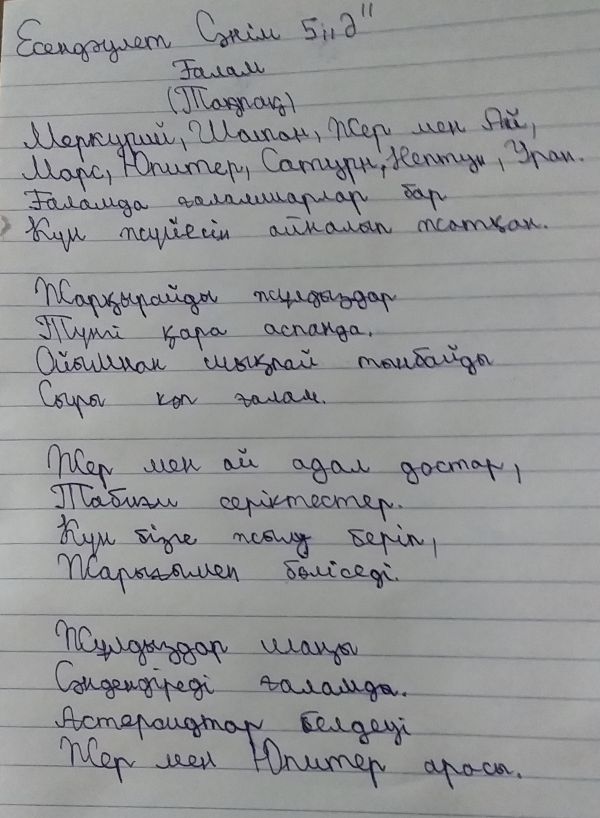 Есендәулет Сәнім 5,,Ә"
Ғалам
(Тақпақ)
Меркурий, Шолпан, Жер мен Ай,
Марс, Юпитер, Сатурн, Нептун, Уран.
Ғаламда ғаламшарлар бар
Күн жүйесін айналып жатқан.
Жарқырайды жұлдыздар
Түнгі қара аспанда.
Ойымнан шықпай тынбайды
Сыры көп ғалам.
Жер мен ай адал достар,
Табиғи серіктестер.
Күн бізге жылу беріп,
Жарығымен бөліседі.
Жұлдыздар шаңы
Сәндендіреді ғаламды.
Астероидтар белдеуі
Жер мен Юпитер арасы.